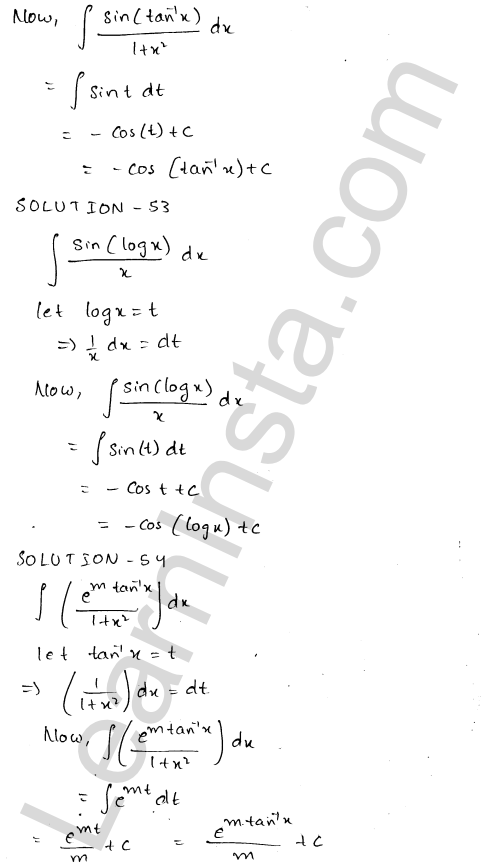 Now, ∫ sin(tan⁻¹x)/(1+x²) dx
= ∫ sin t dt
= - cos(t) + c
= - cos (tan⁻¹x) + c
SOLUTION - 53
∫ sin(logx)/x dx
let logx = t
=> 1/x dx = dt
Now, ∫ sin(logx)/x dx
= ∫ sin(t) dt
= - cos t + c
= - cos (logx) + c
SOLUTION - 54
∫ (e^(m tan⁻¹x)/(1+x²)) dx
let tan⁻¹x = t
=> (1/(1+x²)) dx = dt
Now, ∫ (e^(m tan⁻¹x)/(1+x²)) dx
= ∫ e^(mt) dt
= e^(mt)/m + c = e^(m.tan⁻¹x)/m + c
LearnInsta.com